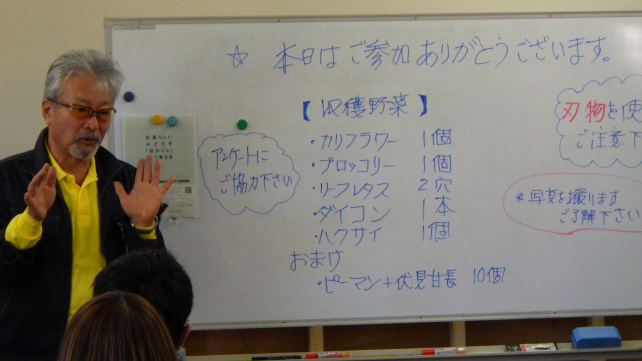 ☆ 本日はご参加ありがとうございます。
【収穫野菜】
・カリフラワー 1個
・ブロッコリー 1個
・リーフレタス 2穴
・ダイコン 1本
・ハクサイ 1個
おまけ
・ピーマン+伏見甘長 10個
アンケートに
ご協力下さい
刃物を使
ご注意下
※写真を撮ります
ご了解下さい